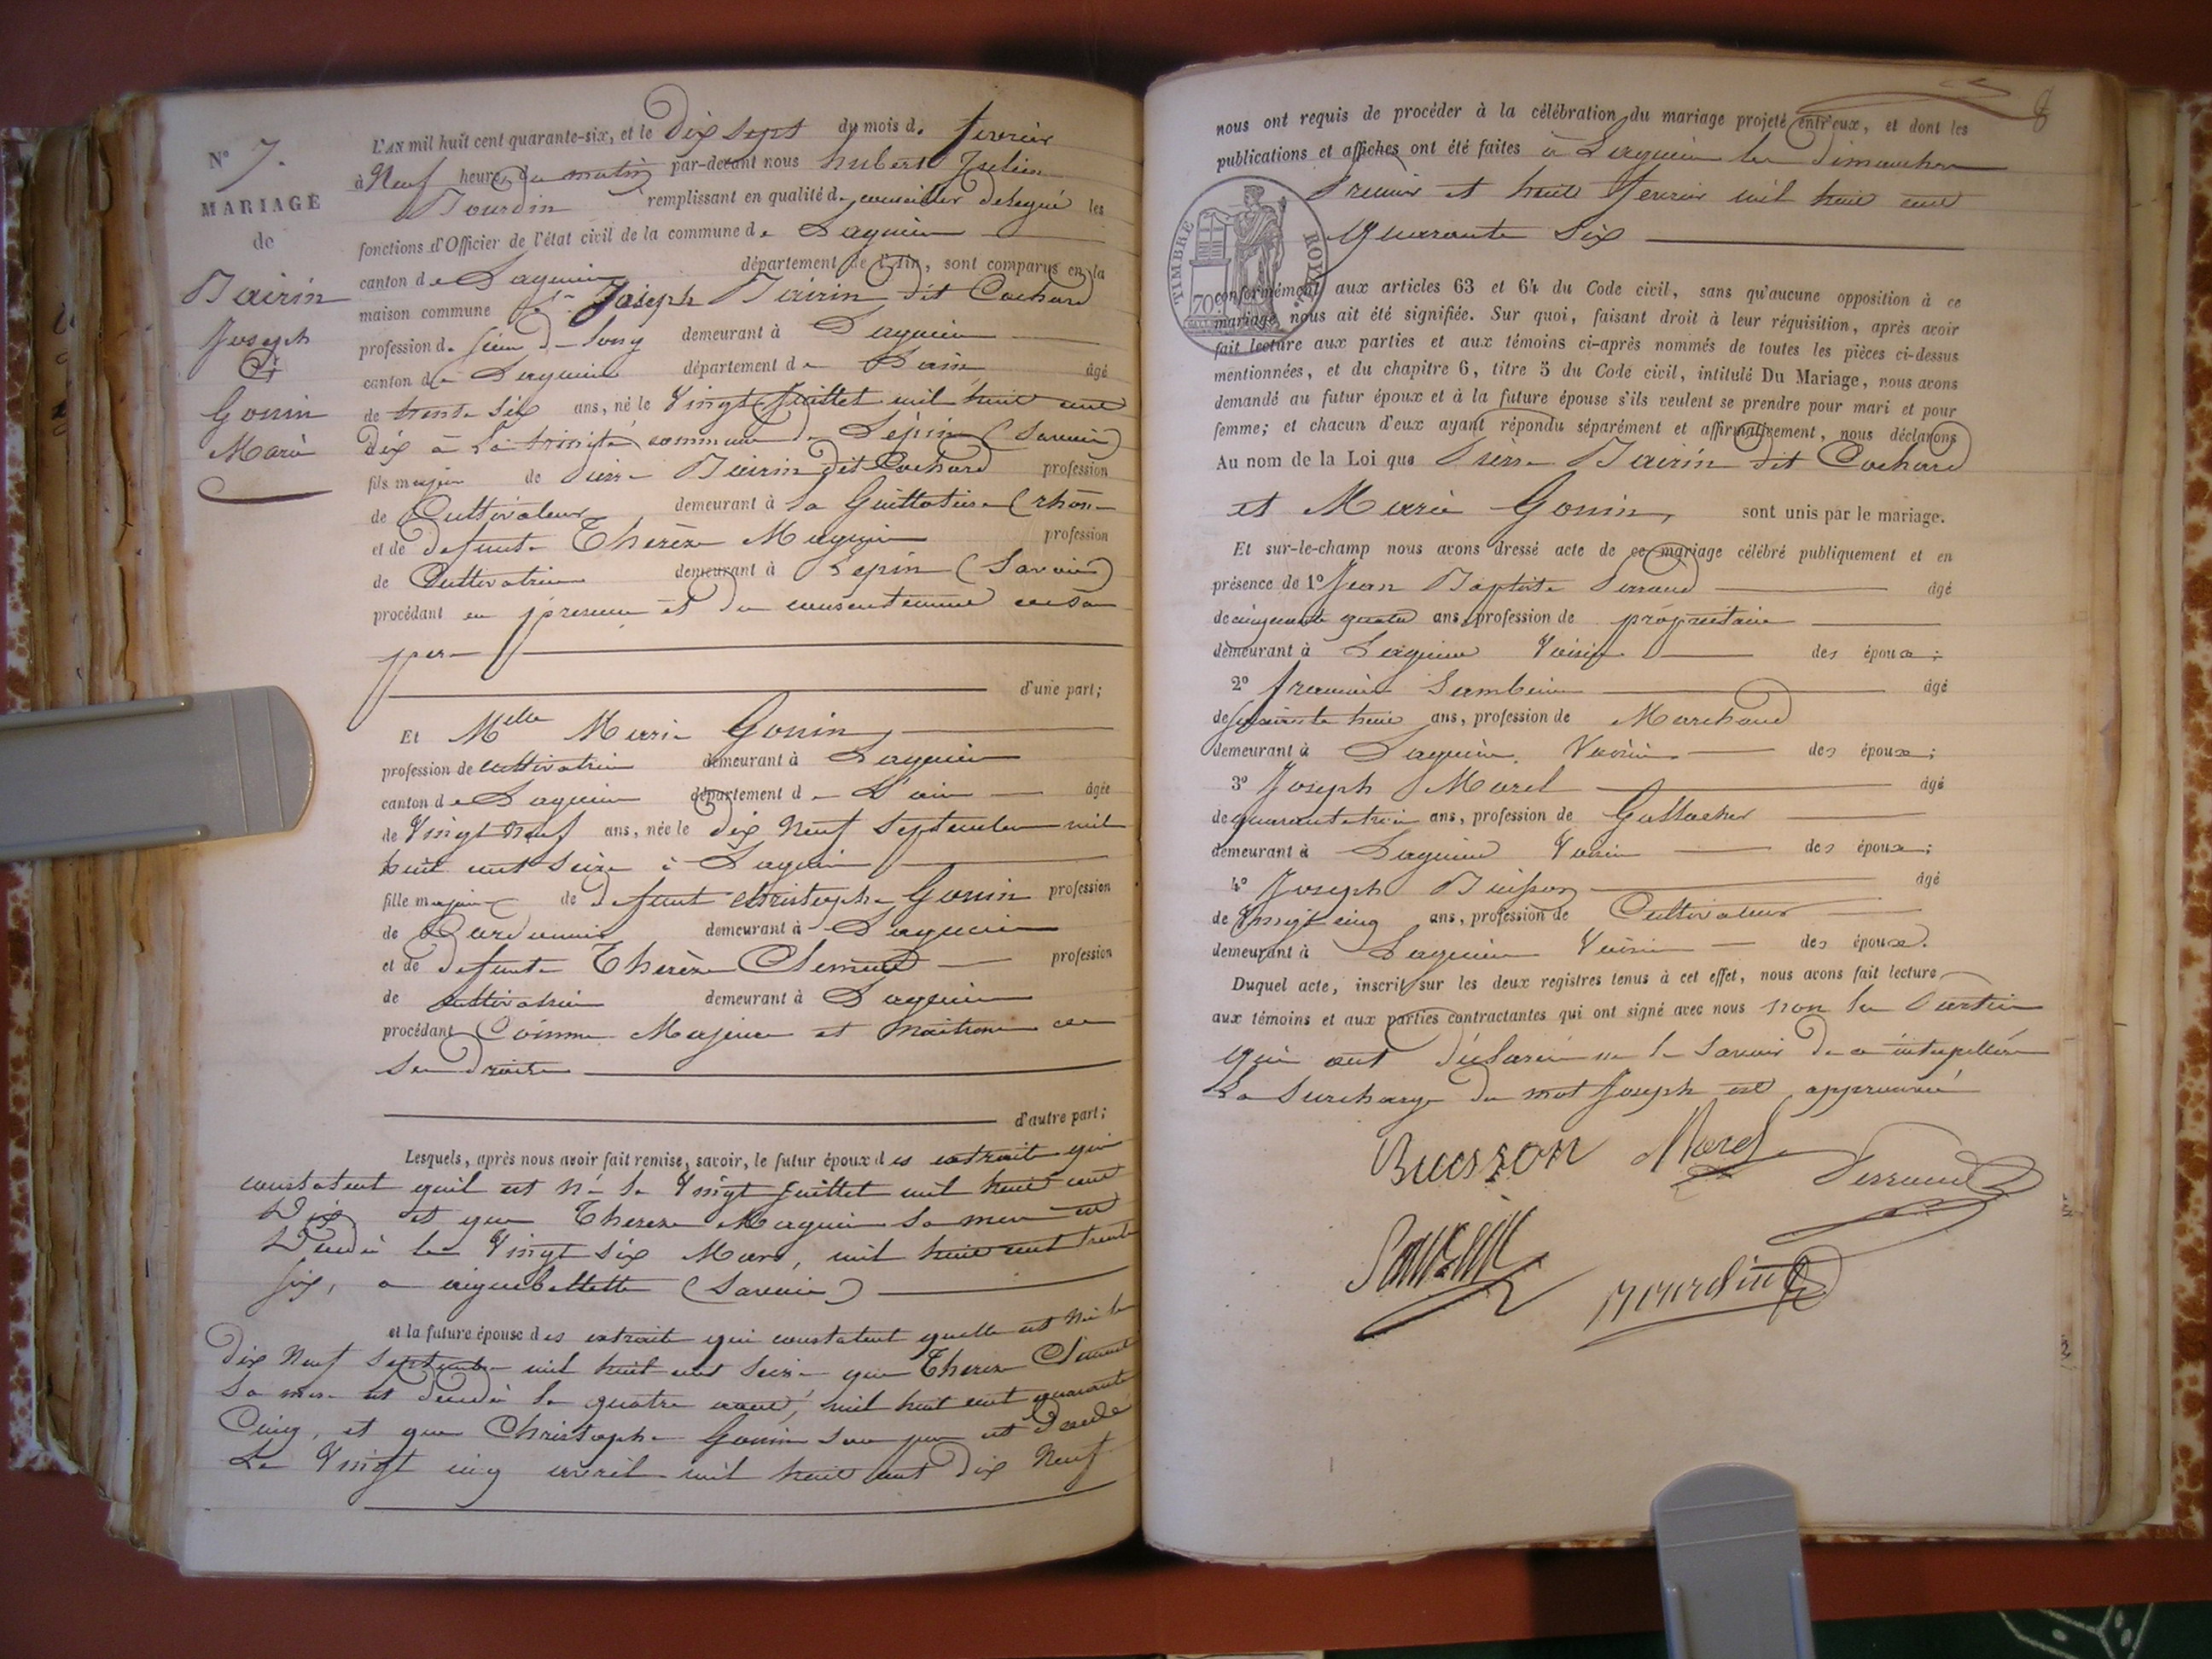 N° 7.
MARIAGE
de
Bairin
Joseph
et
Gonin
Marie
L'AN mil huit cent quarante-six, et le dix sept du mois de fevrier
à Neuf heures du matin par-devant nous hubert
Bourdin remplissant en qualité de conseiller delegué les
fonctions d'Officier de l'état civil de la commune de Lagnieu
canton de Lagnieu département de l'Ain, sont comparus en la
maison commune Sr Joseph Bairin dit Cochard
profession de demeurant à Lagnieu
canton de Lagnieu département de Lain âgé
de trente six ans, né le Vingt Juillet mil huit cent
dix à la trinité commune de Lépin (Savoie)
fils majeur de Pierre Bairin dit Cochard profession
de Cultivateur demeurant à la Guillotiere (rhone
et de defunte Therèze Magnin profession
de Cultivatrice demeurant à Lepin (Savoie)
procédant en presence et du consentement de son
pere
d'une part;
Et Melle Marie Gonin
profession de cultivatrice demeurant à Lagnieu
canton de Lagnieu département de L'ain âgée
de Vingt Neuf ans, née le dix Neuf Septembre mil
huit cent seize à Lagnieu
fille majeure de defunt christophe Gonin profession
de demeurant à Lagnieu
et de defunte Therèze Clement profession
de cultivatrice demeurant à Lagnieu
procédant Comme Majeure et Maitresse de
ses droits
d'autre part;
Lesquels, après nous avoir fait remise, savoir, le futur époux des extraits qui
constatent quil est né le Vingt Juillet mil huit cent
Dix et que Thereze Magnin sa mere est
Décédée le Vingt six Mars, mil huit cent trente
six, a aiguebellette (Savoie)
et la future épouse des extraits qui constatent quelle est née le
dix Neuf Septembre mil huit cent seize que Thereze Clement
sa mere est decedée le quatre aout, mil huit cent quarante
Cinq, et que Christophe Gonin son pere est Decedé
Le Vingt cinq avril mil huit cent dix Neuf
8
nous ont requis de procéder à la célébration du mariage projeté entr'eux, et dont les
publications et affiches ont été faites à Lagnieu les dimanches
Premier et huit fevrier mil huit cent
Quarante Six
TIMBRE ROYAL
70c.
conformément aux articles 63 et 64 du Code civil, sans qu'aucune opposition à ce
mariage nous ait été signifiée. Sur quoi, faisant droit à leur réquisition, après avoir
fait lecture aux parties et aux témoins ci-après nommés de toutes les pièces ci-dessus
mentionnées, et du chapitre 6, titre 5 du Code civil, intitulé Du Mariage, nous avons
demandé au futur époux et à la future épouse s'ils veulent se prendre pour mari et pour
femme; et chacun d'eux ayant répondu séparément et affirmativement, nous déclarons
Au nom de la Loi que Pierre Bairin dit Cochard
et Marie Gonin, sont unis par le mariage.
Et sur-le-champ nous avons dressé acte de ce mariage célébré publiquement et en
présence de 1° Jean Baptiste Perraud âgé
de cinquante quatre ans, profession de propriétaire
demeurant à Lagnieu Voisin des époux;
2° francois âgé
de huit ans, profession de Marchand
demeurant à Lagnieu Voisin des époux;
3° Joseph Morel âgé
de quarante trois ans, profession de
demeurant à Lagnieu Voisin des époux;
4° Joseph Buisson âgé
de Vingt cinq ans, profession de Cultivateur
demeurant à Lagnieu Voisin des époux.
Duquel acte, inscrit sur les deux registres tenus à cet effet, nous avons fait lecture
aux témoins et aux parties contractantes qui ont signé avec nous non les Parties
qui ont déclaré ne le Savoir de ce interpellés
La Surcharge du mot Joseph est approuvée
Buisson Morel Perraud
Bourdin